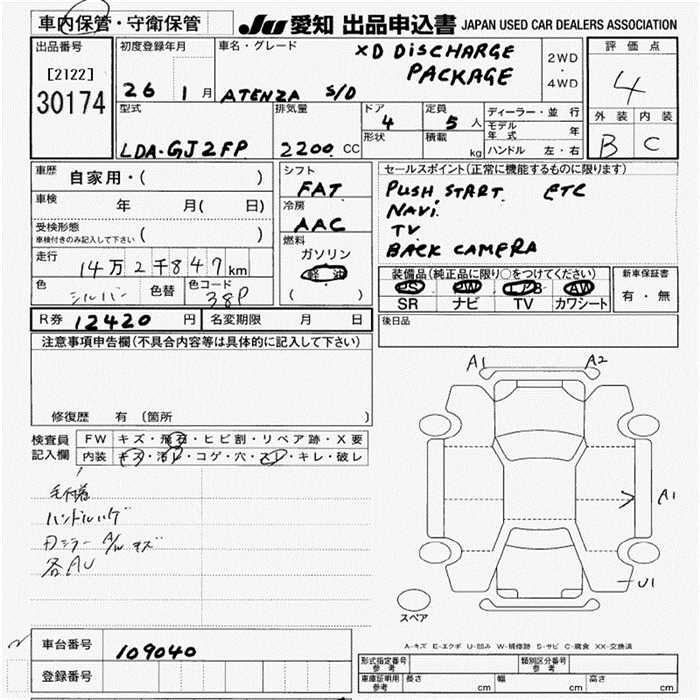 車内保管・守衛保管
JU 愛知 出品申込書 JAPAN USED CAR DEALERS ASSOCIATION
出品番号
[2122]
30174
初度登録年月
26 1月
車名・グレード
XD DISCHARGE
PACKAGE
ATENZA S/D
2WD
・
4WD
評価点
4
外装 内装
B C
型式
LDA-GJ2FP
排気量
2200 CC
ドア
4
形状
定員
5人
積載
kg
ディーラー・並行
モデル年式 年
ハンドル 左・右
車歴 自家用・( )
車検 年 月( 日)
受検形態
車検付きのみ記入して下さい ( )
走行 14万2千847km
色 シルバー 色替 色コード 38P
シフト
FAT
冷房
AAC
燃料
ガソリン
軽油
( )
セールスポイント(正常に機能するものに限ります)
PUSH START. ETC
NAVi.
TV
BACK CAMERA
装備品(純正品に限り○をつけてください)
PS PW エアB AW
SR ナビ TV カワシート
新車保証書
有・無
R券 12420 円 名変期限 月 日
後日品
注意事項申告欄(不具合内容等は具体的に記入して下さい)
修復歴 有 (箇所 )
検査員
記入欄
FW キズ・飛石・ヒビ割・リペア跡・X要
内装 キズ・汚レ・コゲ・穴・スレ・キレ・破レ
ハンドルハゲ
A/W キズ
各AU
A1 A2
A1
U1
スペア
A-キズ E-エクボ U-凹み W-補修跡 S-サビ C-腐食 XX-交換済
車台番号 109040
登録番号
型式指定番号
参考
類別区分番号
参考
車庫証明用
参考
長さ cm 幅 cm 高さ cm